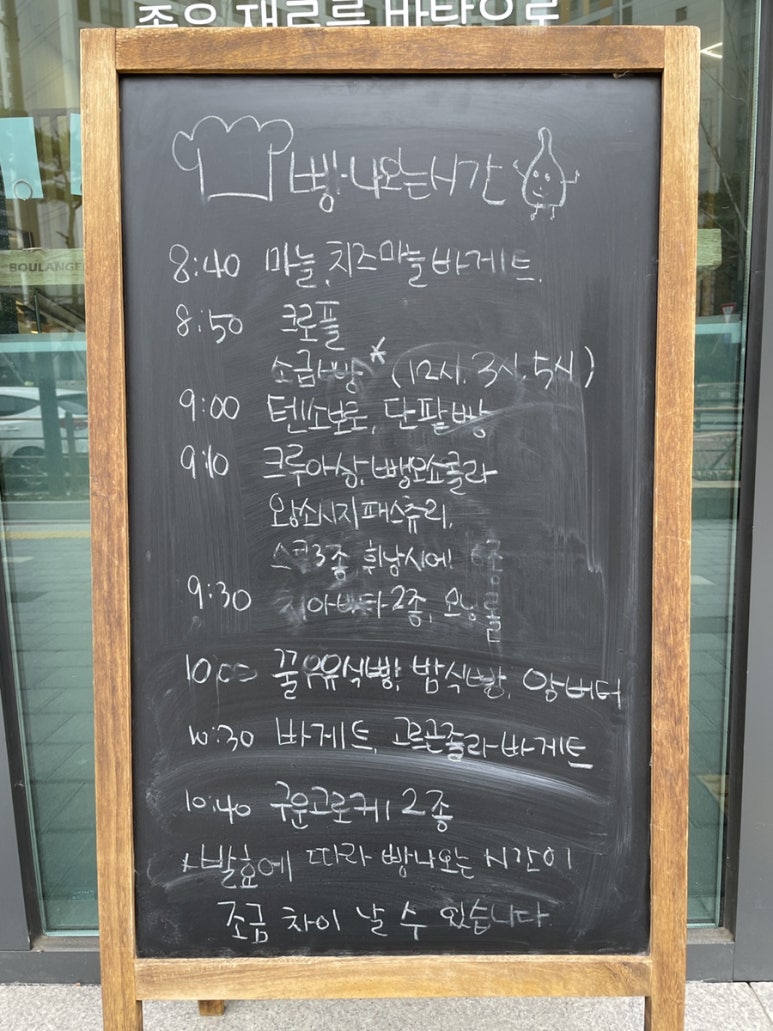 좋은 재료를 바탕으로
BOULANGE
빵 나오는시간
8:40 마늘, 치즈마늘바게트.
8:50 크로플
소금빵* (12시. 3시. 5시)
9:00 텐소보로, 단팥빵
9:10 크루아상, 뺑오쇼콜라
왕소시지패스츄리.
스콘3종 휘낭시에
9:30 치아바타2종, 모닝롤
10:00 꿀우유식빵, 밤식빵, 앙버터
10:30 바게트, 고르곤졸라바게트
10:40 구운고로케 2종
*발효에 따라 빵나오는 시간이
조금 차이 날 수 있습니다.